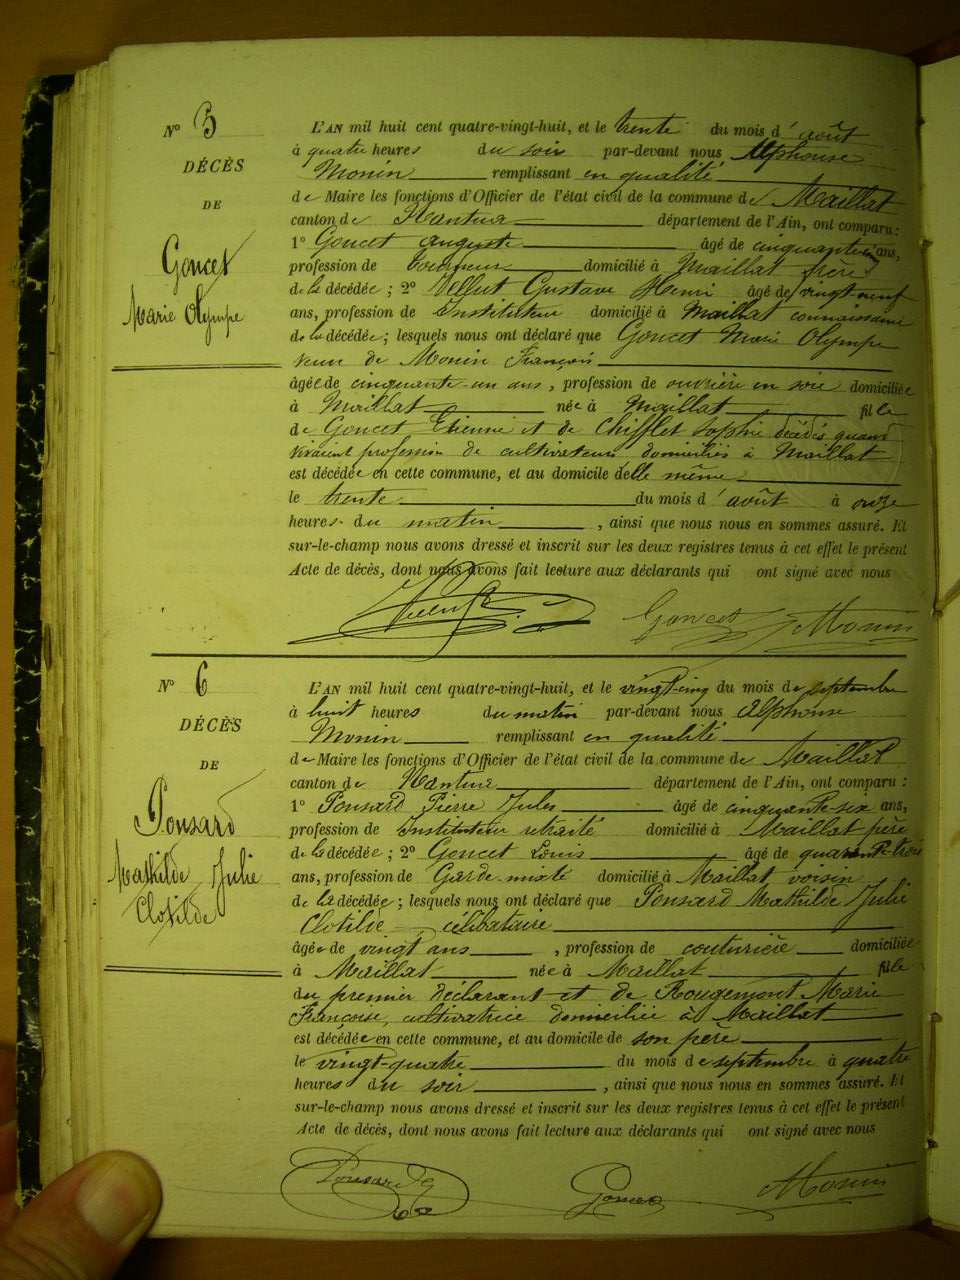 N° 5
DÉCÈS
DE
Goncet
Marie Olympe
L'AN mil huit cent quatre-vingt-huit, et le trente du mois d'août
à quatre heures du soir par-devant nous Alphonse
Monin remplissant en qualité
de Maire les fonctions d'Officier de l'état civil de la commune de Maillat
canton de Nantua département de l'Ain, ont comparu :
1° Goncet auguste âgé de ans,
profession de domicilié à Maillat frère
de la décédée ; 2° Gustave Henri âgé de vingt-neuf
ans, profession de Instituteur domicilié à Maillat connaissance
de la décédée ; lesquels nous ont déclaré que Goncet Marie Olympe
veuve de Monin François
âgée de cinquante-un ans, profession de ouvrière en soie domiciliée
à Maillat née à Maillat fille
de Goncet Etienne et de Chifflet Sophie décédés quand
vivaient profession de cultivateurs domiciliés à Maillat
est décédée en cette commune, et au domicile delle même
le trente du mois d'août à onze
heures du matin, ainsi que nous nous en sommes assuré. Et
sur-le-champ nous avons dressé et inscrit sur les deux registres tenus à cet effet le présent
Acte de décès, dont nous avons fait lecture aux déclarants qui ont signé avec nous
Goncet Monin
N° 6
DÉCÈS
DE
Ponsard
Mathilde Julie
Clotilde
L'AN mil huit cent quatre-vingt-huit, et le vingt-cinq du mois de septembre
à huit heures du matin par-devant nous Alphonse
Monin remplissant en qualité
de Maire les fonctions d'Officier de l'état civil de la commune de Maillat
canton de Nantua département de l'Ain, ont comparu :
1° Ponsard Pierre Jules âgé de cinquante-six ans,
profession de Instituteur retraité domicilié à Maillat père
de la décédée ; 2° Goncet Louis âgé de quarante-trois
ans, profession de Garde-mixte domicilié à Maillat voisin
de la décédée ; lesquels nous ont déclaré que Ponsard Mathilde Julie
Clotilde célibataire
âgée de vingt ans, profession de couturière domiciliée
à Maillat née à Maillat fille
du premier déclarant et de Rougemont Marie
Françoise, cultivatrice domiciliée à Maillat
est décédée en cette commune, et au domicile de son père
le vingt-quatre du mois de septembre à quatre
heures du soir, ainsi que nous nous en sommes assuré. Et
sur-le-champ nous avons dressé et inscrit sur les deux registres tenus à cet effet le présent
Acte de décès, dont nous avons fait lecture aux déclarants qui ont signé avec nous
Ponsard Goncet Monin